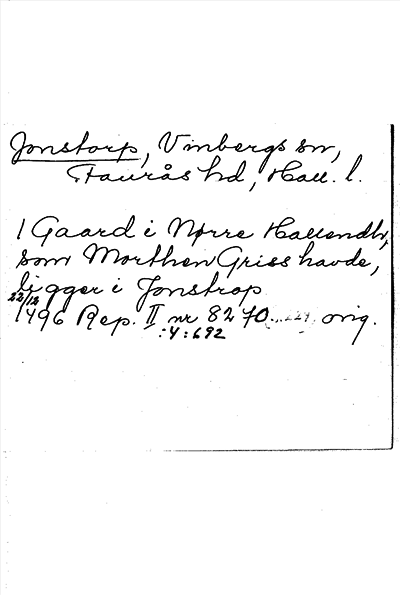 Jonstorp, Vinbergs sn,
Faurås hd, Hall. l.
1 Gaard i Nørre Hallendh,
som Morthen Griss havde,
ligger i Jonstrop
22/12
1496 Rep. II nr 8270 orig.
:4:692